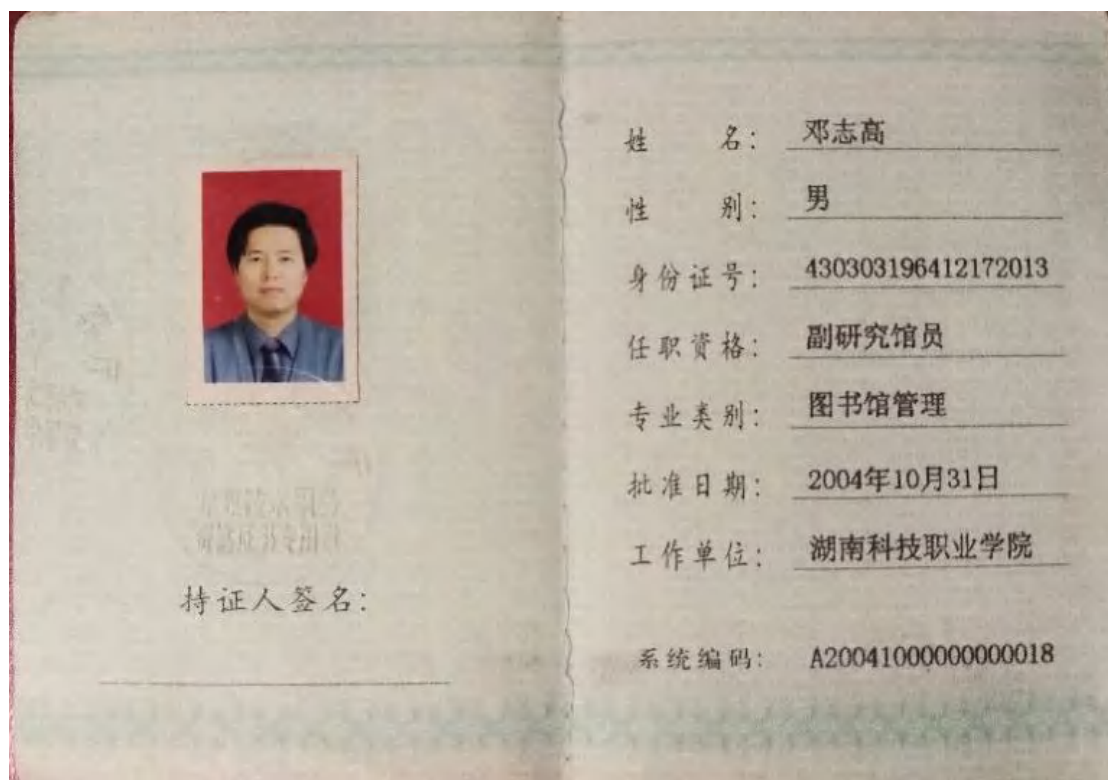 持证人签名:
姓名: 邓志高
性别: 男
身份证号: 430303196412172013
任职资格: 副研究馆员
专业类别: 图书馆管理
批准日期: 2004年10月31日
工作单位: 湖南科技职业学院
系统编码: A20041000000000018